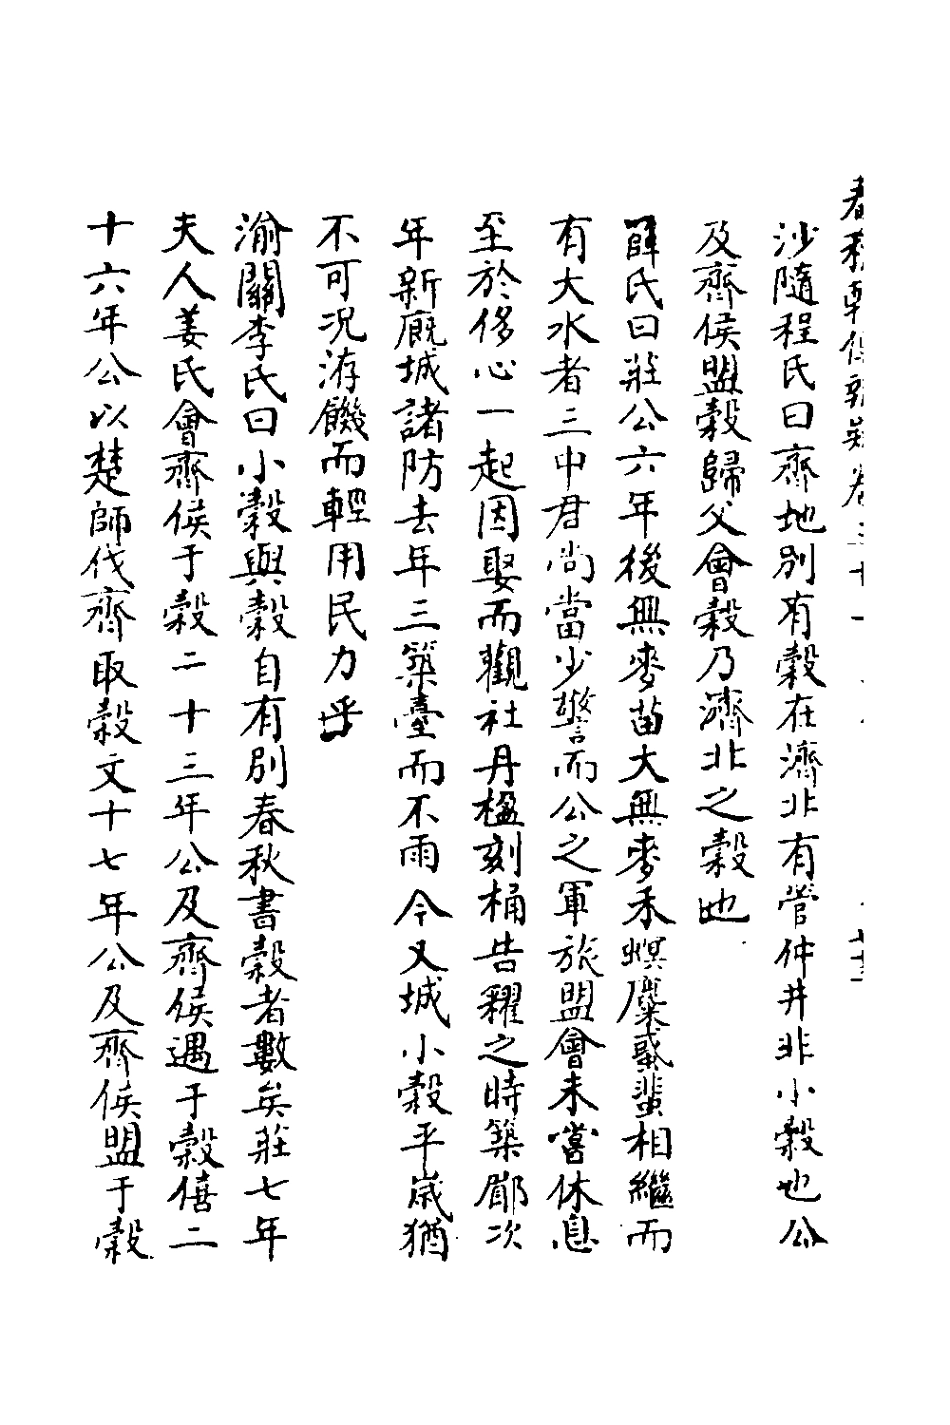 沙隨程氏曰齊地別有穀在濟北有管仲井非小穀也公
及齊侯盟穀歸父會穀乃濟北之穀也
薛氏曰莊公六年後無麥苗大無麥禾螟麋蜮蜚相繼而
有大水者三中君尚當少警而公之軍旅盟會未嘗休息
至於侈心一起因娶而觀社丹楹刻桷告糴之時築郿次
年新廐城諸防去年三築臺而不雨今又城小穀平歲猶
不可況洊饑而輕用民力乎
渝關李氏曰小穀與穀自有別春秋書穀者數矣莊七年
夫人姜氏會齊侯于穀二十三年公及齊侯遇于穀僖二
十六年公以楚師伐齊取穀文十七年公及齊侯盟于穀